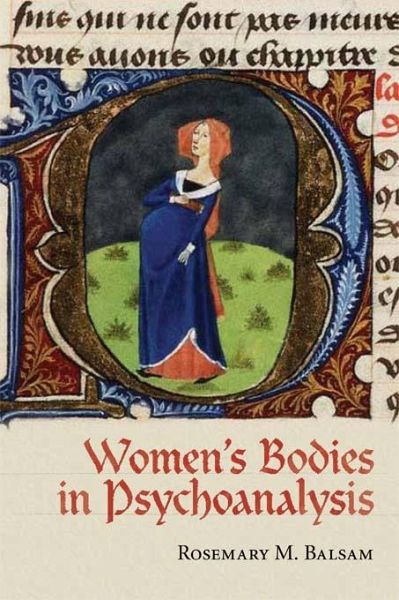 sins qui ne sont pas meurs
nous auons ou chappitre
la
Women's Bodies
in Psychoanalysis
Rosemary M. Balsam